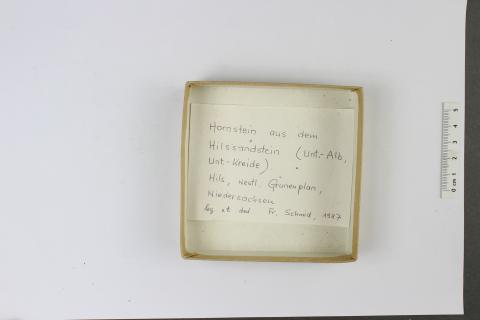 Hornstein aus dem
Hilssandstein (Unt.-Alb,
Unt-Kreide)
Hils, westl. Grünenplan,
Niedersachsen
leg et ded Fr. Schmid, 1987
0 cm 1 2 3 4 5